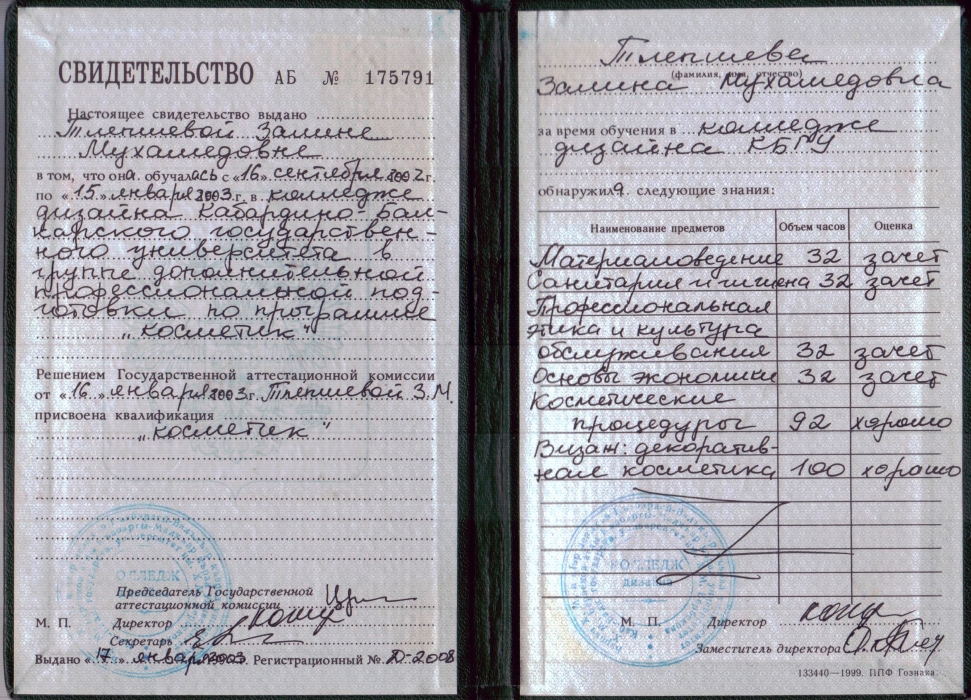 СВИДЕТЕЛЬСТВО АБ № 175791
Настоящее свидетельство выдано
Тлепшевой Залине
Мухамедовне
в том, что она. обучалась с «16». сентября 2002 г.
по «15» января 2003 г. в колледже
дизайна Кабардино-Бал-
карского государствен-
ного университета в
группе дополнительной
профессиональной под-
готовки по программе
„косметик"
Решением Государственной аттестационной комиссии
от «16». января 2003г. Тлепшевой З.М.
присвоена квалификация
„косметик"
КОЛЛЕДЖ
Председатель Государственной
аттестационной комиссии
М. П. Директор
Секретарь
Выдано «17». января 2003 Регистрационный № Д-2008
Тлепшева
(фамилия, имя, отчество)
Залина Мухамедовна
за время обучения в колледже
дизайна КБГУ
обнаружила. следующие знания:
Наименование предметов Объем часов Оценка
Материаловедение 32 зачет
Санитария и гигиена 32 зачет
Профессиональная
этика и культура
обслуживания 32 зачет
Основы экономики 32 зачет
Косметические
процедуры 92 хорошо
Визаж: декоратив-
ная косметика 100 хорошо
КОЛЛЕДЖ
дизайна
М. П. Директор
Заместитель директора
133440—1999. ППФ Гознака.